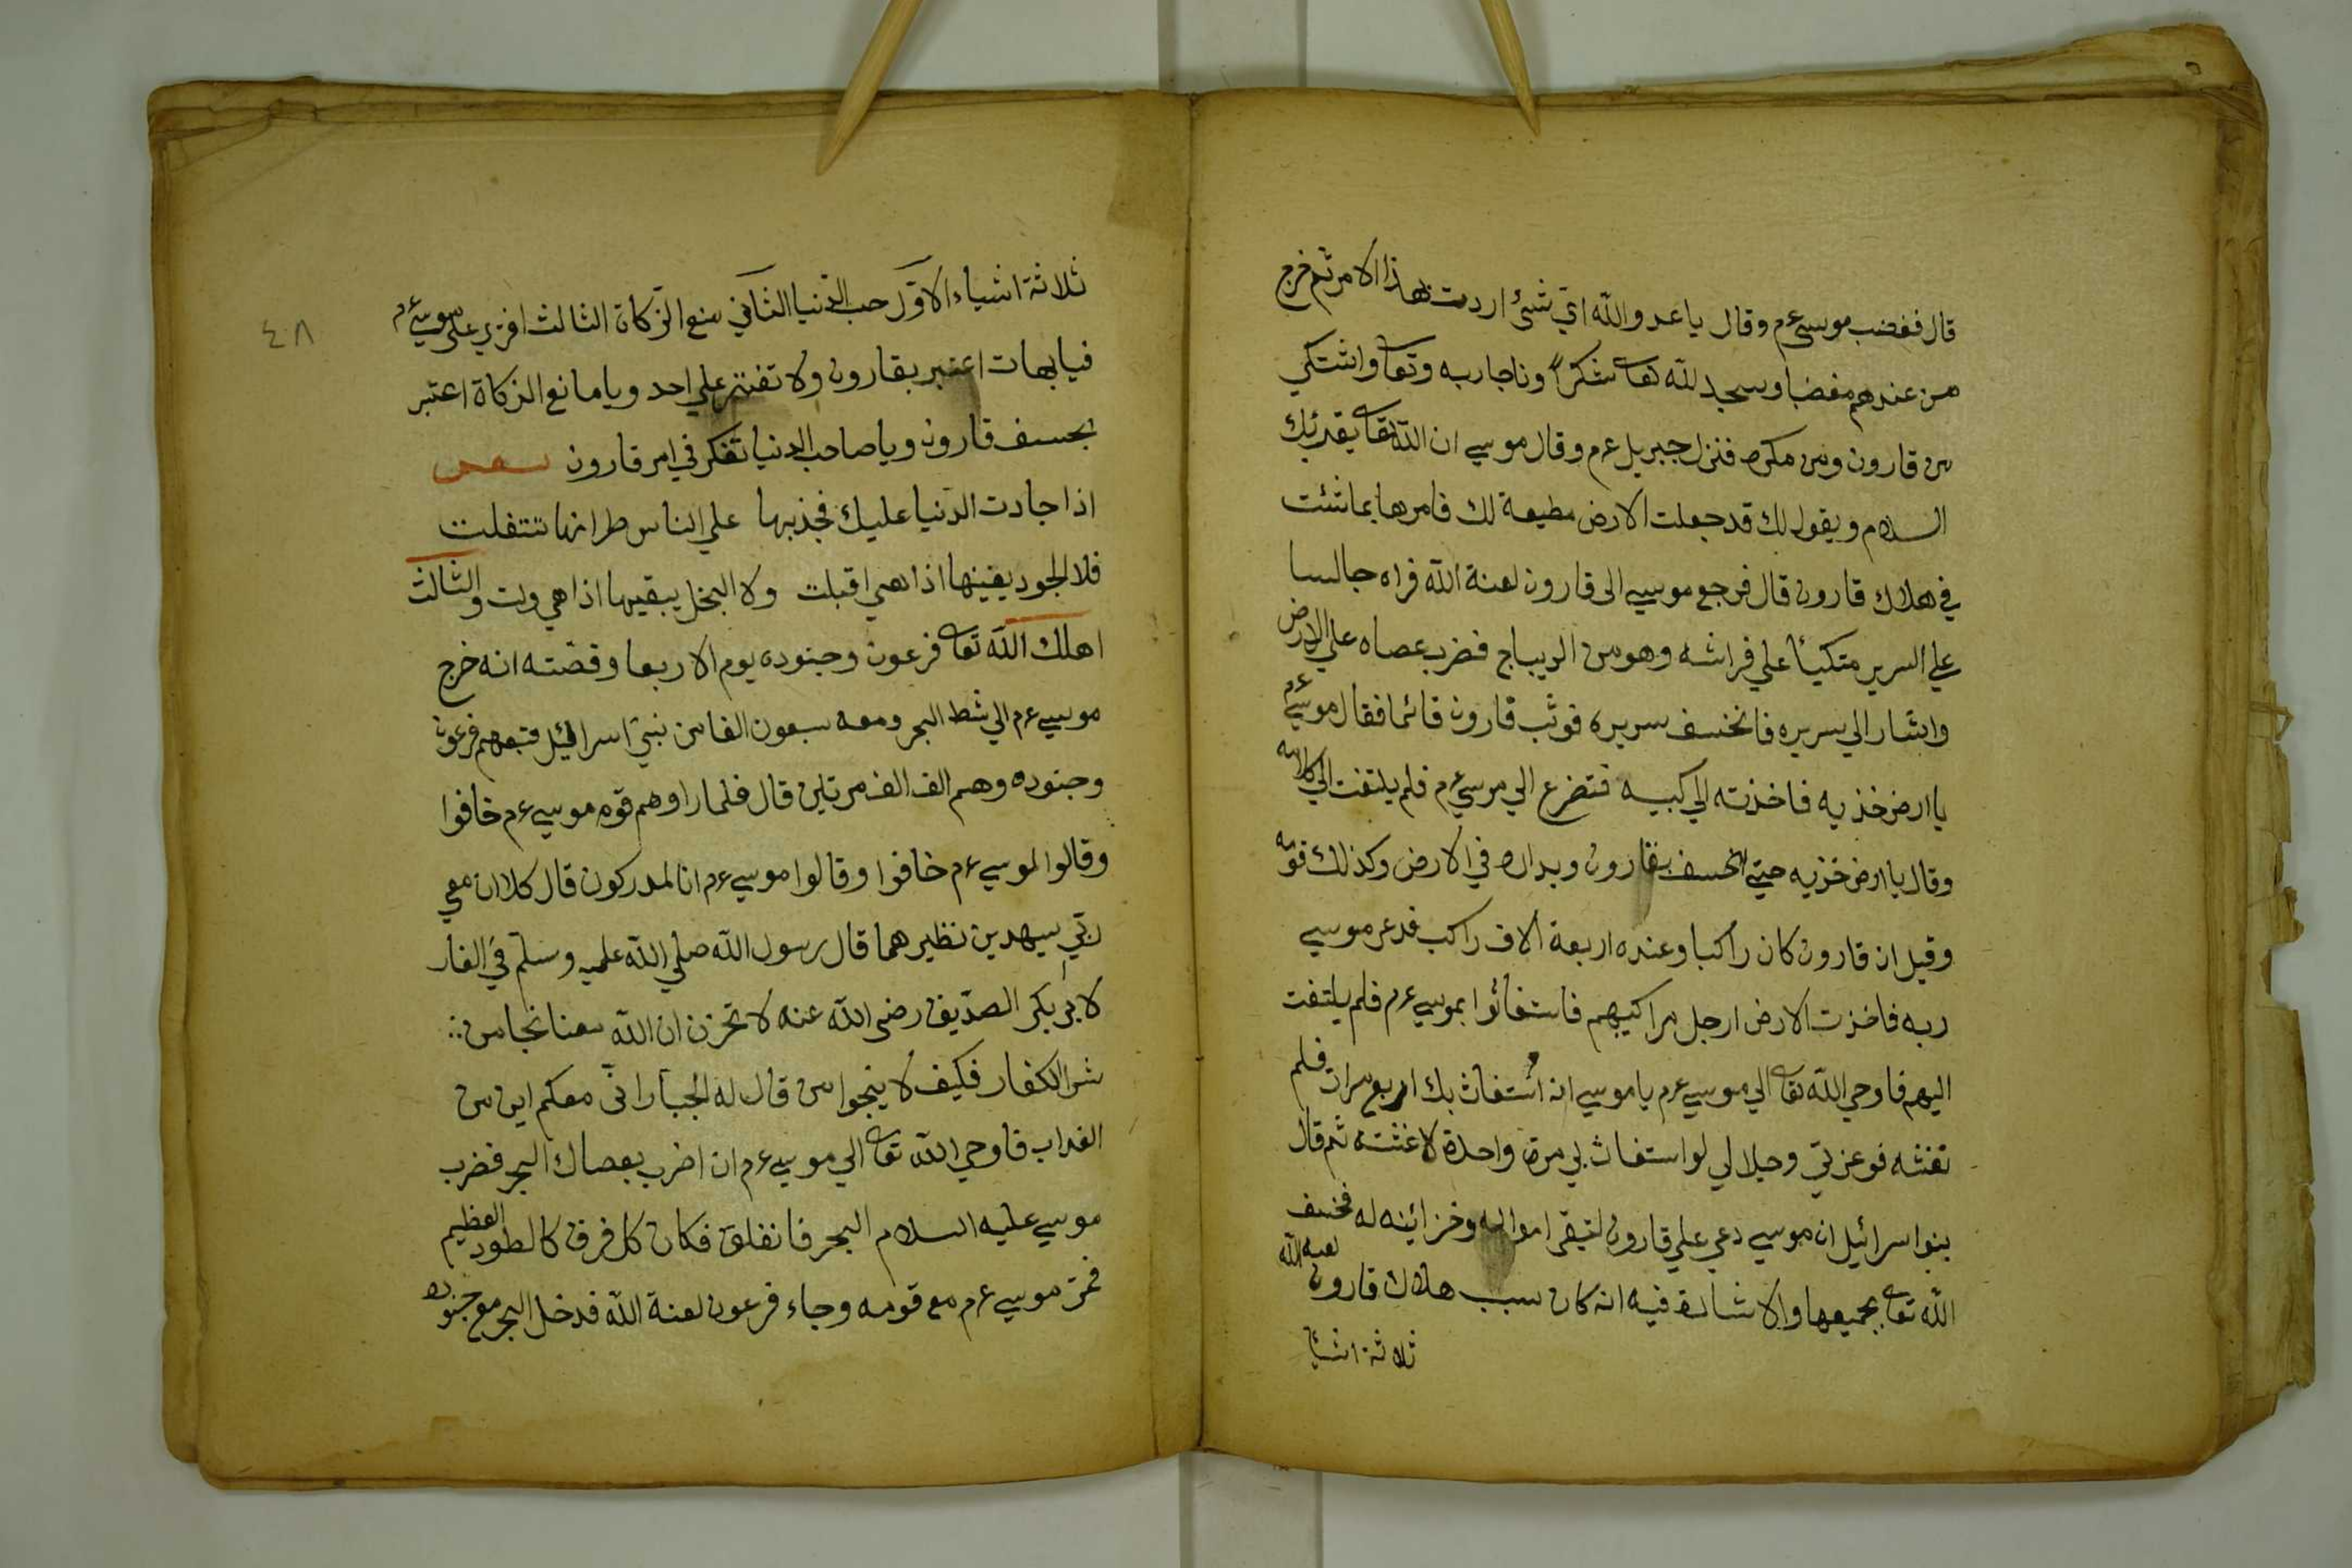 قال فغضب موسى ع م وقال يا عدو الله اي شئ اردت بهذا الامر ثم خرج
من عندهم مغضبا وسجد لله تعا شكرا وناجا ربه وتعا واشتكي
من قارون ومن مكره فنزل جبريل ع م وقال موسي ان الله تعا يقرئك
السلام ويقول لك قد جعلت الارض مطيعة لك فامرها بما شئت
في هلاك قارون قال فرجع موسي الى قارون لعنة الله فراه جالسا
علي السرير متكيأ علي فراشه وهو من الديباج فضرب عصاه علي الارض
واشار الي سريره فانخسف سريره فوثب قارون قائما فقال موسي ع م
يا ارض خذيه فاخذته الي كبيه فتضرع الي موسي ع م فلم يلتفت الي كلامه
وقال يا ارض خذيه حتي انخسف بقارون وبداره في الارض وكذلك قومه
وقيل ان قارون كان راكبا وعنده اربعة الاف راكب فدعر موسي
ربه فاخذت الارض ارجل مراكيبهم فاستغاثوا بموسي ع م فلم يلتفت
اليهم فاوحي الله تعا الي موسي ع م يا موسي انه استغاث بك اربع مرات فلم
تغثه فوعزتي وجلالي لو استغاث بي مرة واحدة لاغثته ثم قال
بنوا اسرائيل ان موسي دعي علي قارون لتبقى امواله وخزائينه له فخسف
الله تعا بجميعها والاشارة فيه انه كان سبب هلاك قارون لعنه الله
ثلاثة اشيا
٤٨
ثلاثة اشياء الاول حب الدنيا الثاني منع الزكاة الثالث افتري علي موسي ع م
فيا بهات اعتبر بقارون ولا تفتر علي احد ويا مانع الزكاة اعتبر
بخسف قارون ويا صاحب الدنيا تفكر في امر قارون شعر
اذا جادت الدنيا عليك فجذبها علي الناس طرا انها تتفلت
فلا الجود يفنيها اذا هي اقبلت ولا البخل يبقيها اذا هي ولت والثالث
اهلك الله تعا فرعون وجنوده يوم الاربعا وقصته انه خرج
موسي ع م الي شط البحر ومعه سبعون الفا من بني اسرائيل فتبعهم فرعون
وجنوده وهم الف الف مرتين قال فلما راوهم قوم موسي ع م خافوا
وقالوا لموسي ع م خافوا وقالوا موسي ع م انا لمدركون قال كلا ان معي
ربي سيهدين نظيرهما قال رسول الله صلي الله عليه وسلم في الغار
لابي بكر الصديق رضي الله عنه لا تحزن ان الله معنا نجا من
شر الكفار فكيف لا ينجوا من قال له الجبار اني معكم اين من
العذاب فاوحي الله تعا الي موسي ع م ان اضرب بعصاك البحر فضرب
موسي عليه السلام البحر فانفلق فكان كل فرق كالطود العظيم
فمر موسي ع م مع قومه وجاء فرعون لعنة الله فدخل البحر مع جنوده